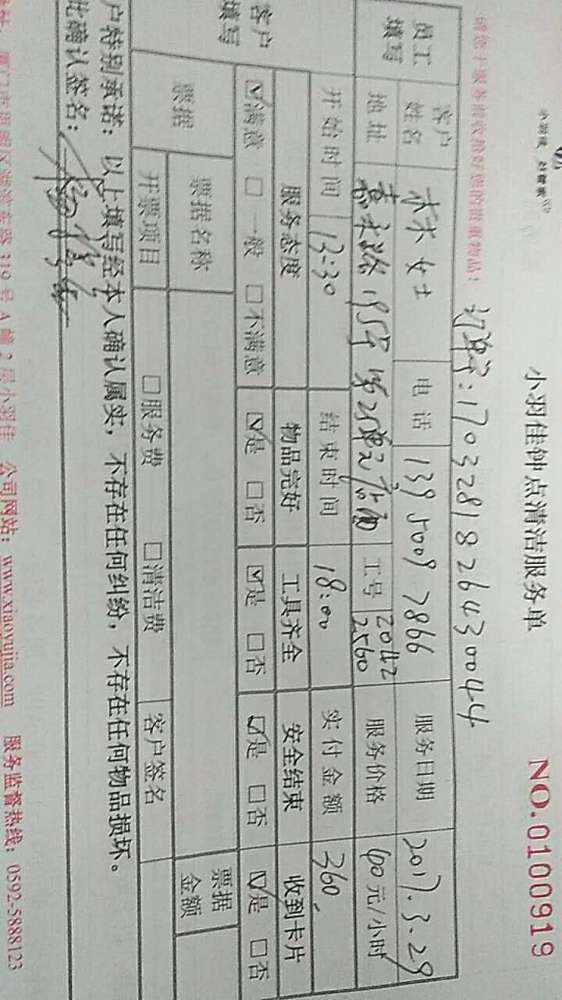 小羽佳钟点清洁服务单
NO.0100919
订单号:170328182643 0044
请您于服务前收拾好您的贵重物品!
员工填写
客户姓名 林女士 电话 139 5009 7866 服务日期 2017.3.29
地址 195号 工号 2042 2560 服务价格 40元/小时
开始时间 13:30 结束时间 18:00 实付金额 360
客户填写
服务态度 物品完好 工具齐全 安全结束 收到卡片
☑满意 □一般 □不满意 ☑是 □否 ☑是 □否 ☑是 □否 ☑是 □否
票据
票据名称 票据金额
开票项目 □服务费 □清洁费 客户签名
户特别承诺:以上填写经本人确认属实,不存在任何纠纷,不存在任何物品损坏。
此确认签名:
119号A幢2层小羽佳 公司网站:www.xiaoyujia.com 服务监督热线:0592-5888123